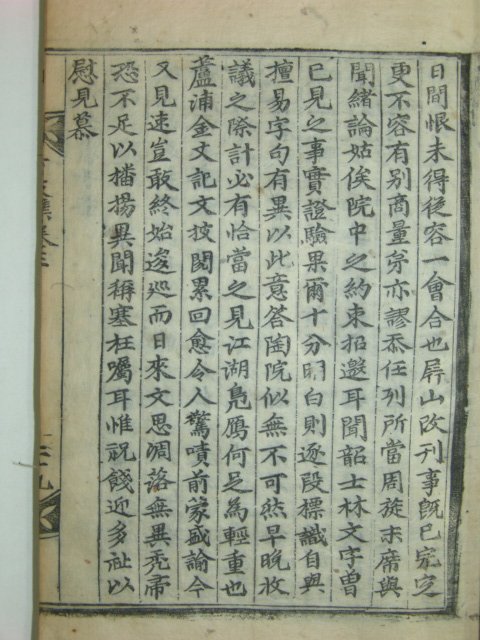 日間恨未得從容一會合也屛山改刊事旣已完定
更不容有別商量弟亦謬忝任列所當周旋末席與
聞緖論姑俟院中之約束招邀耳聞韶士林文字曾
已見之事實證驗果爾十分明白則逐段標識自與
擅易字句有異以此意答陶院似無不可然早晩收
議之際計必有恰當之見江湖鳧鴈何足爲輕重也
蘆浦金文記文按閱累回愈令人驚嘖前蒙盛諭今
又見速豈敢終始逡巡而日來文思凋落無異禿帚
恐不足以播揚異聞稱塞枉囑耳惟祝餞迎多祉以
慰見慕
文集卷三
三十九